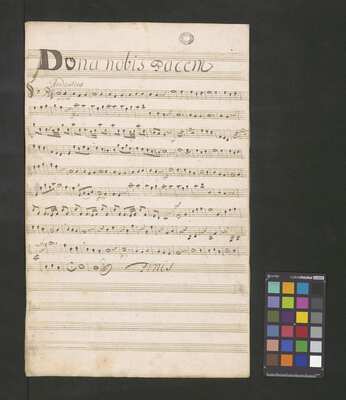 Dona nobis pacem
Andantino
Finis